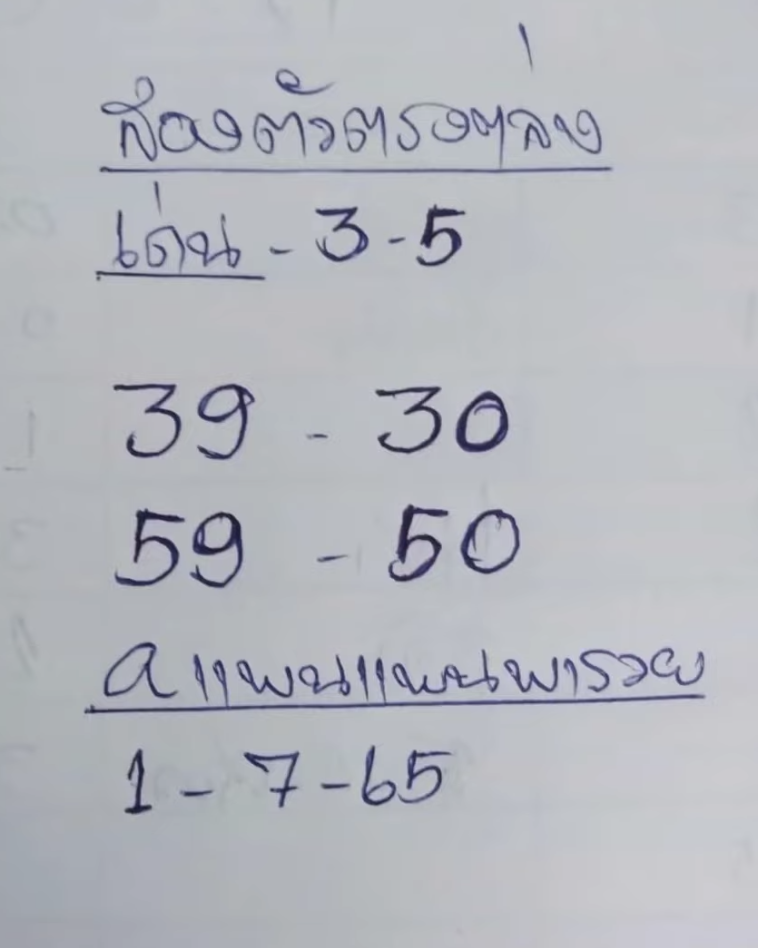 สองตัวตรงๆล่าง
เด่น - 3 - 5
39 - 30
59 - 50
aแพนแพนพารวย
1 - 7 - 65